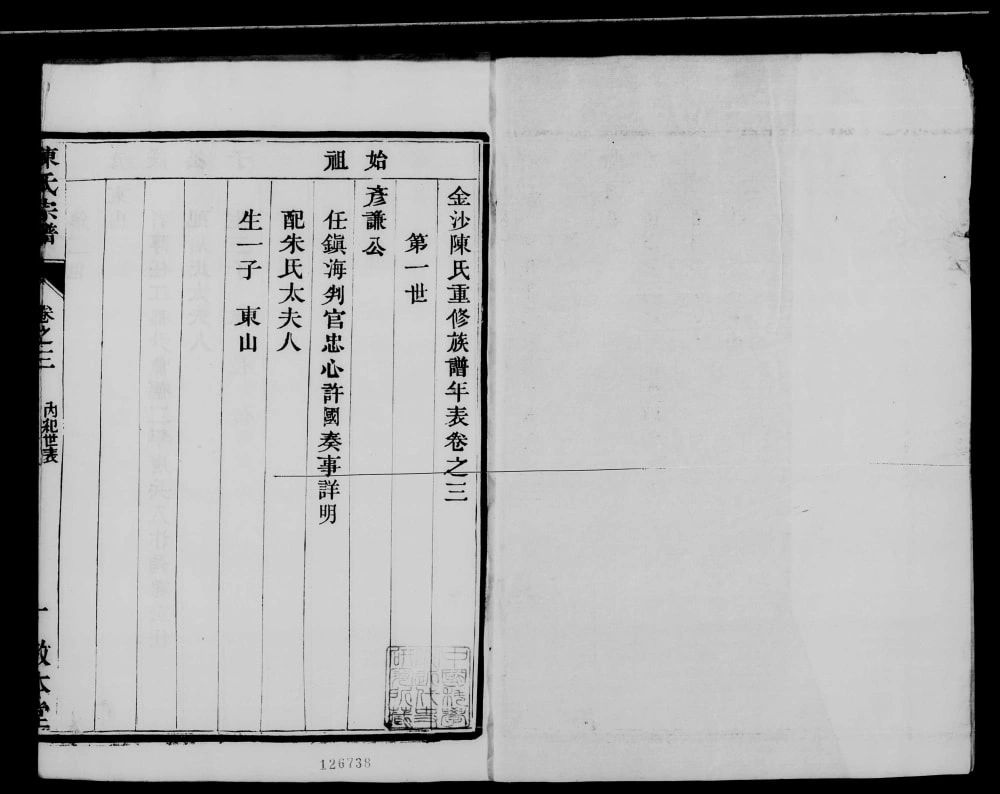 金沙陳氏重修族譜年表卷之三
第一世
始祖
彦謙公
任鎮海判官忠心許國奏事詳明
配朱氏太夫人
生一子　東山
陳氏宗譜
卷之三
內紀世表
一
敦本堂
126738